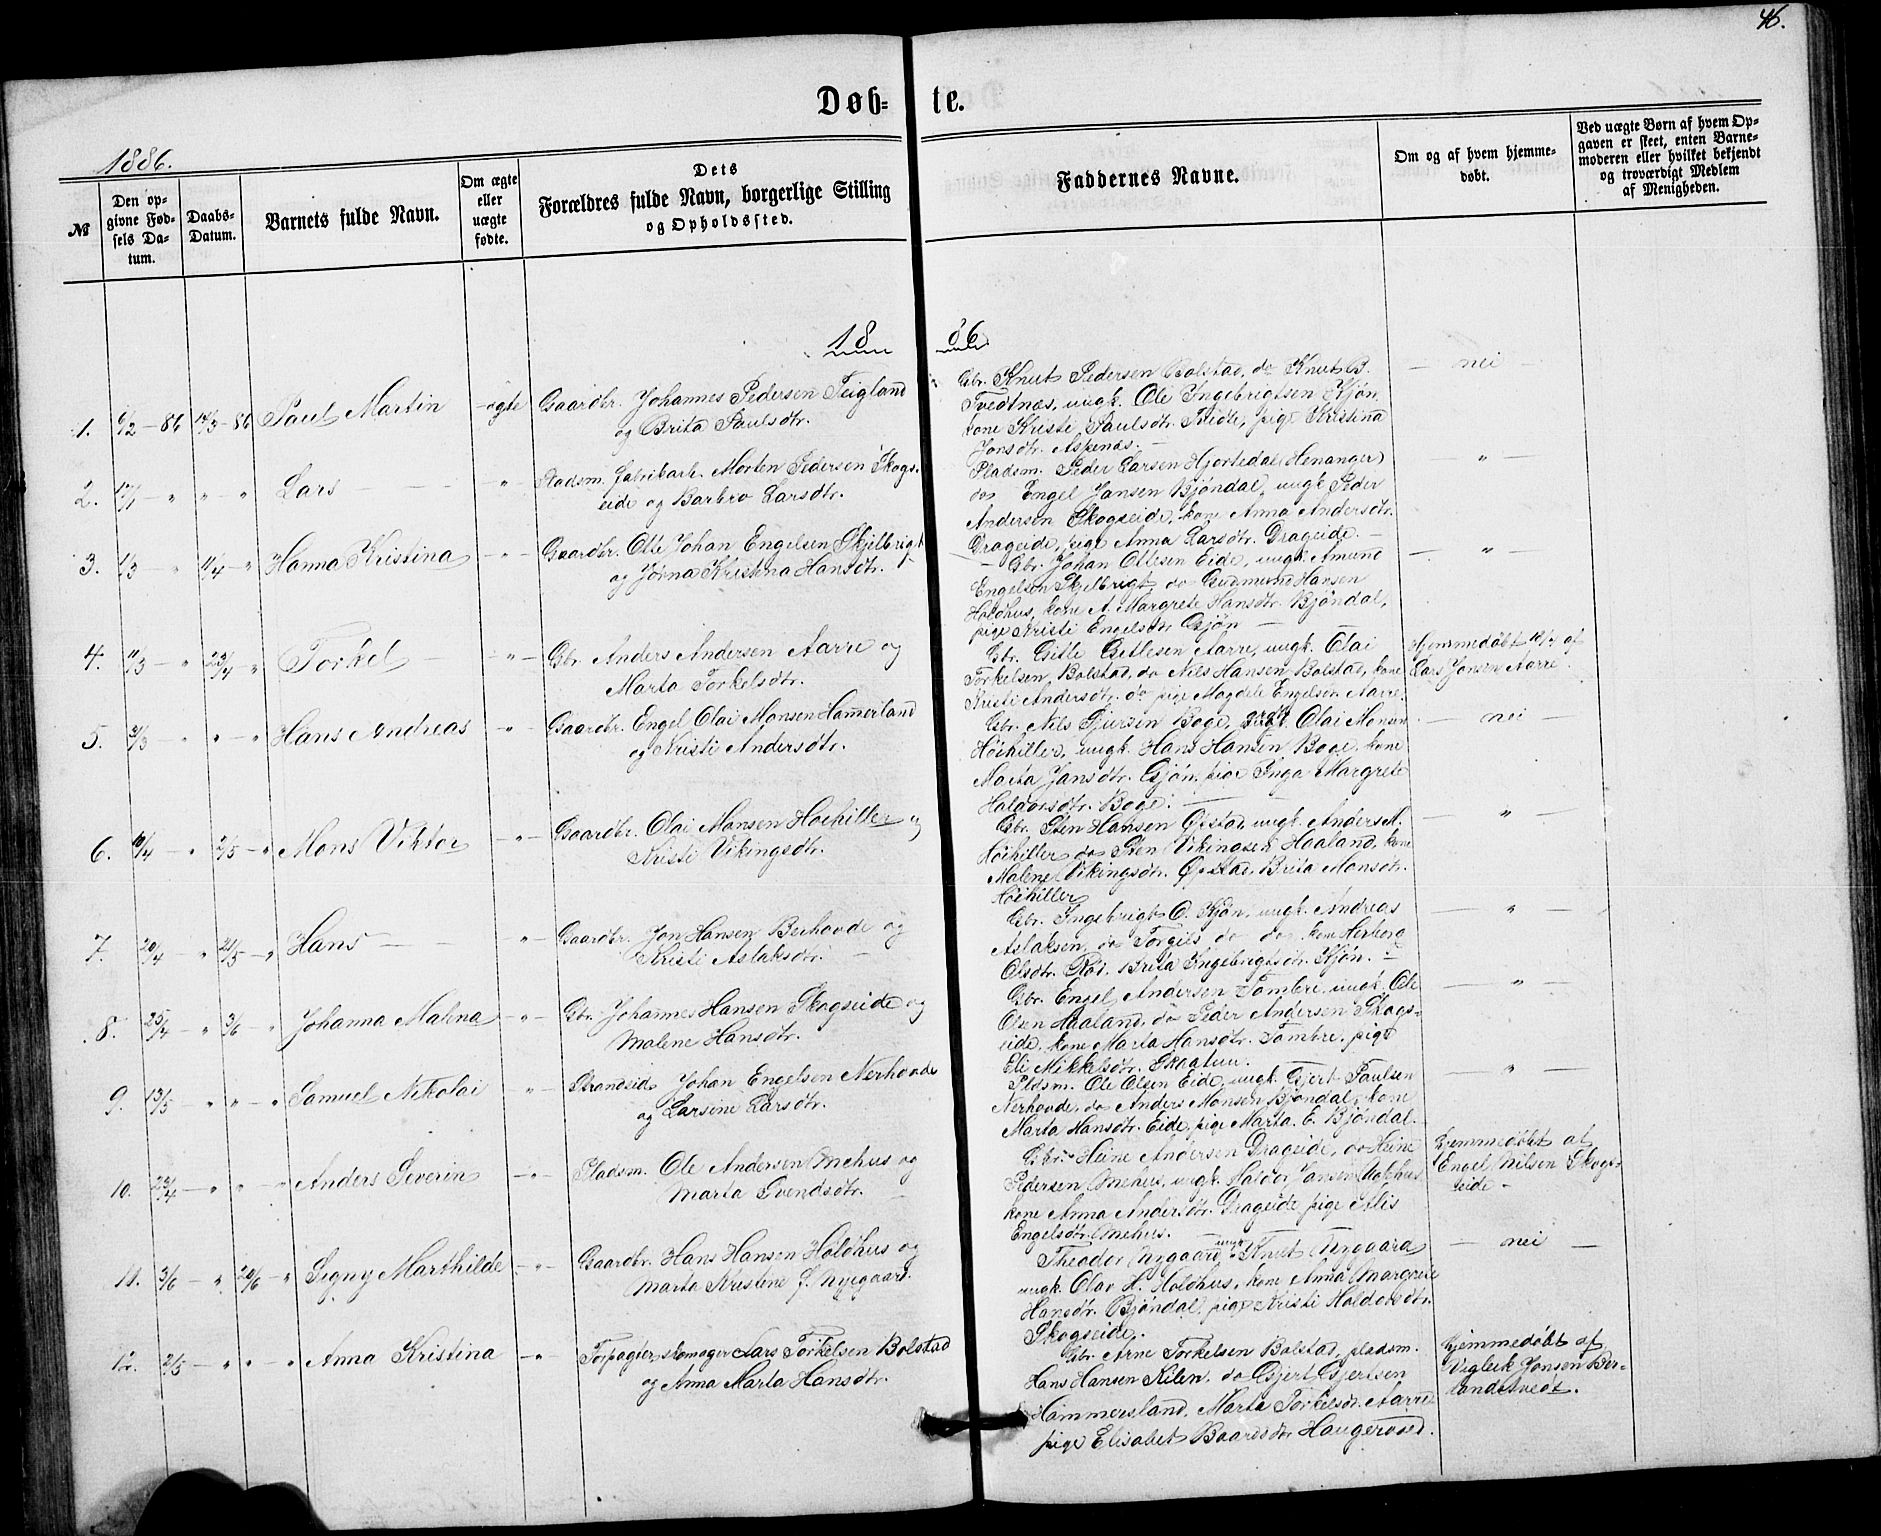 46.
Døb-
te.
1886.
№
Den op-
givne Fød-
sels Da-
tum.
Daabs-
Datum.
Barnets fulde Navn.
Om ægte
eller
uægte
fødte.
Dets
Forældres fulde Navn, borgerlige Stilling
og Opholdssted.
Faddernes Navne.
Om og af hvem hjemme-
døbt.
Ved uægte Børn af hvem Op-
gaven er skeet, enten Barne-
moderen eller hvilket bekjendt
og troværdigt Medlem
af Menigheden.
18 86
1. 6/2 - 86 14/3 - 86 Paul Martin - ægte Gaardbr. Johannes Pedersen Teigland
og Brita Paulsdtr.
Gbr. Knut Pedersen Bolstad, do Knut B.
Tvedtnæs, ungk. Ole Ingebrigtsen Kjön,
kone Kristi Paulsdtr. Tvedte, pige Kristina
Jonsdtr. Aspenæs. -
- nei -
2. 17/1 - " " - " Lars - " Pladsm. fabrikarb. Morten Pedersen Skogs-
eide og Barbro Larsdtr.
Pladsm. Peder Larsen Hjortedal (Henanger)
do Engel Jansen Bjöndal, ungk. Peder
Andersen Skogseide, kone Anna Andersdtr.
Drageide, pige Anna Larsdtr. Drageide. -
- " -
3. 1/3 - " 11/4 - " Hanna Kristina - " - Gaardbr. Otte Johan Engelsen Skjelbrigt
og Jorna Kristina Hansdtr.
- Gbr. Johan Ottesen Eide, ungk. Amund
Engelsen Skjelbrigt, do Gudmund Hansen
Holdhus, kone A. Margrete Hansdtr. Bjöndal,
pige Kristi Engelsdtr. Gjön -
- " -
4. 11/3 - " 23/4 " Torkel - " - Gbr. Anders Andersen Aarre og
Marta Torkelsdtr.
Gbr. Gitle Gitlesen Aarre, ungk. Olai
Torkelsen Bolstad, do Nils Hansen Bolstad, kone
Kristi Andersdtr. do pige Magdele Engelsen Aarre.
Hjemmedöbt 18/4 af
Lars Jonsen Aarre.
5. 31/3 " " - " Hans Andreas - " - Gaardbr. Engel Olai Monsen Hamerland
og Kristi Andersdtr.
Gbr. Nils Sjursen Boge, Olai Monsen
Höihiller, ungk. Hans Hansen Boge, kone
Marta Jansdtr. Gjön, pige Inga Margrete
Haldorsdtr. Boge. -
- nei -
6. 10/4 - " 2/5 - " Mons Viktor - " - Gaardbr. Olai Monsen Höihiller og
Kristi Vikingsdtr.
Gbr. Sten Hansen Öpstad, ungk. Anders M.
Höihiller do Sten Vikingsen Haaland, kone
Malene Vikingsdtr. Öpstad, Brita Monsdtr.
Höihiller
- " -
7. 20/4 - " 21/5 - " Hans - " - Gaardbr. Jon Hansen Berhovde og
Kristi Aslaksdtr. -
Gbr. Ingebrigt O. Kjön, ungk. Andreas
Aslaksen, do Torgils do do, kone Herborg
Olsdtr. Röi, Brita Ingebrigtsdtr. Kjön. -
- " -
8. 25/4 - " 3/6 - " Johanna Malena - " - Gbr. Johannes Hansen Skogseide og
Malene Hansdtr.
Gbr. Engel Andersen Tombre, ungk. Ole
Olsen Haaland, do Peder Andersen Skogs-
eide, kone Marta Hansdtr. Tombre, pige
Eli Mikkelsdtr. Skaatun.
- " -
9. 13/5 - " " - " Samuel Nikolai - " - Strandsid. Johan Engelsen Nerhovde
og Larsine Larsdtr.
Pladsm. Ole Olsen Eide, ungk. Gjert Paulsen
Nerhovde, do Anders Monsen Bjöndal, kone
Marta Hansdtr. Eide, pige Marta E. Bjöndal.
- " -
10. 22/4 - " " - " Anders Severin - " - Pladsm. Ole Andersen Mehus og
Marta Svendsdtr. -
Gbr. Heine Andersen Drageide, do Heine
Pedersen Mehus, ungk. Haldor Jansen Holdhus
kone Anna Andersdtr. Drageide, pige Alis
Engelsdtr. Mehus.
Hjemmedöbt af
Engel Nilsen Skogs-
seide -
11. 3/6 - " 20/6 " Signy Marthilde - " - Gaardbr. Hans Hansen Holdhus og
Marta Kristine f. Nyegaard.
Theodor Nygaard, ungk. Knut Nygaard
ungk. Olav H. Holdhus, kone Anna Margrete
Hansdtr. Bjöndal, pige Kristi Haldorsdtr.
Skogseide.
- nei -
12. 2/5 - " " - " Anna Kristina - " - Forpagter, skomager Lars Torkelsen Bolstad
og Anna Marta Hansdtr.
Gbr. Arne Torkelsen Bolstad, pladsm.
Hans Hansen Kilen, do Gjert Gjertsen
Hammersland, Marta Torkelsdtr. Aarre
pige Elisabet Baardsdtr. Haugerved.
hjemmedöbt af
Vigleik Jonsen Ber-
landstvedt.